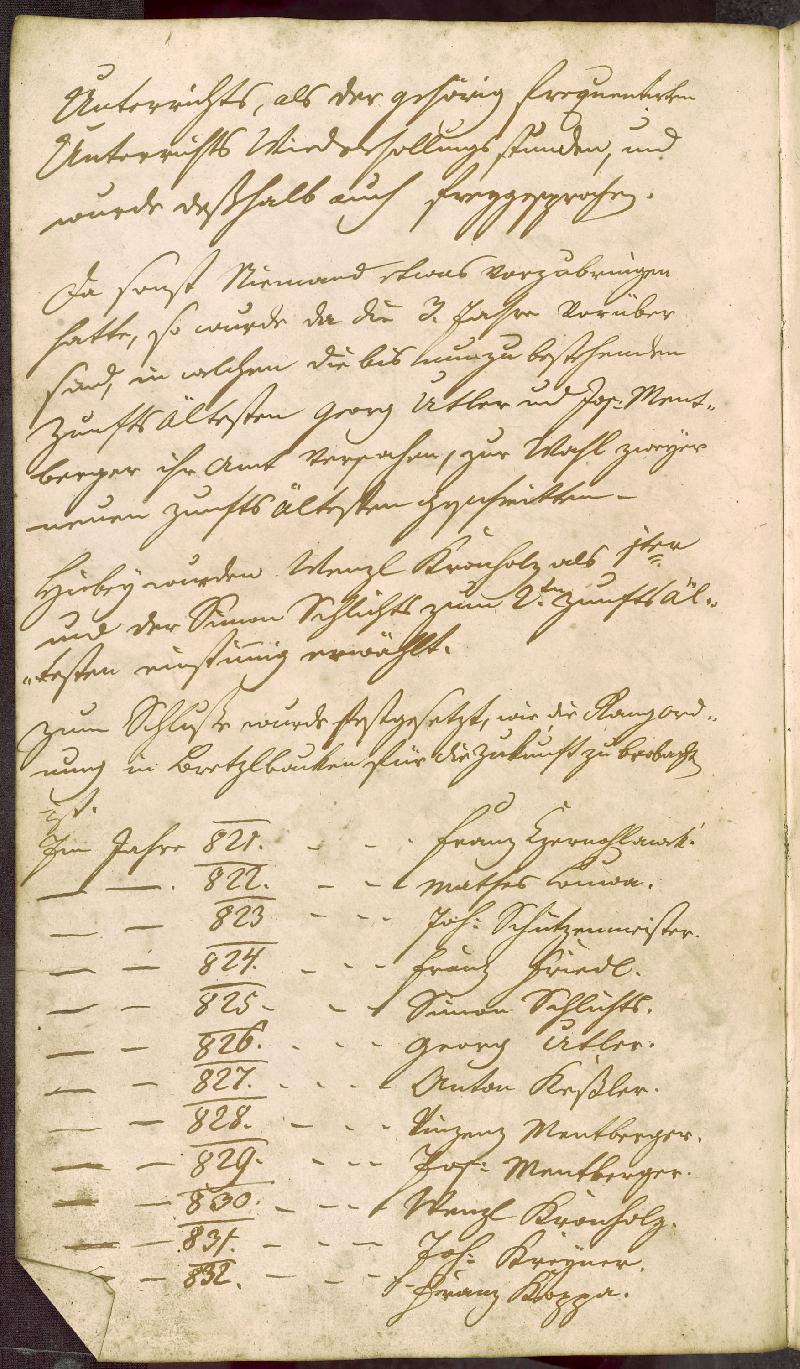 Unterrichts, als der gehörig frequentirten
Unterrichts Wiederhollungsstunden, und
wurde deßhalb auch freygesprochen.
Da sonst Niemand etwas vorzubringen
hatte, so wurde da die 3. Jahre vorüber
sind, in welchen die bis nunzu bestehenden
Zunftsältesten Georg Utler und Jos: Ment„
berger ihr Amt versachen, zur Wahl zweyer
neuen Zunftsältesten geschritten –
Hiebey wurden Wenzl Kronholz als 1ter
und der Simon Schlichts zum 2ten Zunftsäl„
„testen einstimig erwählt.
Zum Schluße wurde festgesetzt, wie die Rangord„
nung in Bretzlbacken für die Zukunft zu beobacht
ist.
Im Jahre 821. - - - Franz
— — 822. - - Mathes
— — 823 - - - Joh: Schützenmeister.
— — 824. - - - Franz Friedl.
— — 825. - - Simon Schlichts.
— — 826. - - - Georg Utler.
— — 827. - - - Anton Keßler.
— — 828. - - - Vinzenz Mentberger.
— — 829. - - - Jos: Mentberger.
— — 830. - - - Wenzl Kronholz.
— — 831. - - - Joh: Kreyner.
— — 832. - - - Franz Koppa.